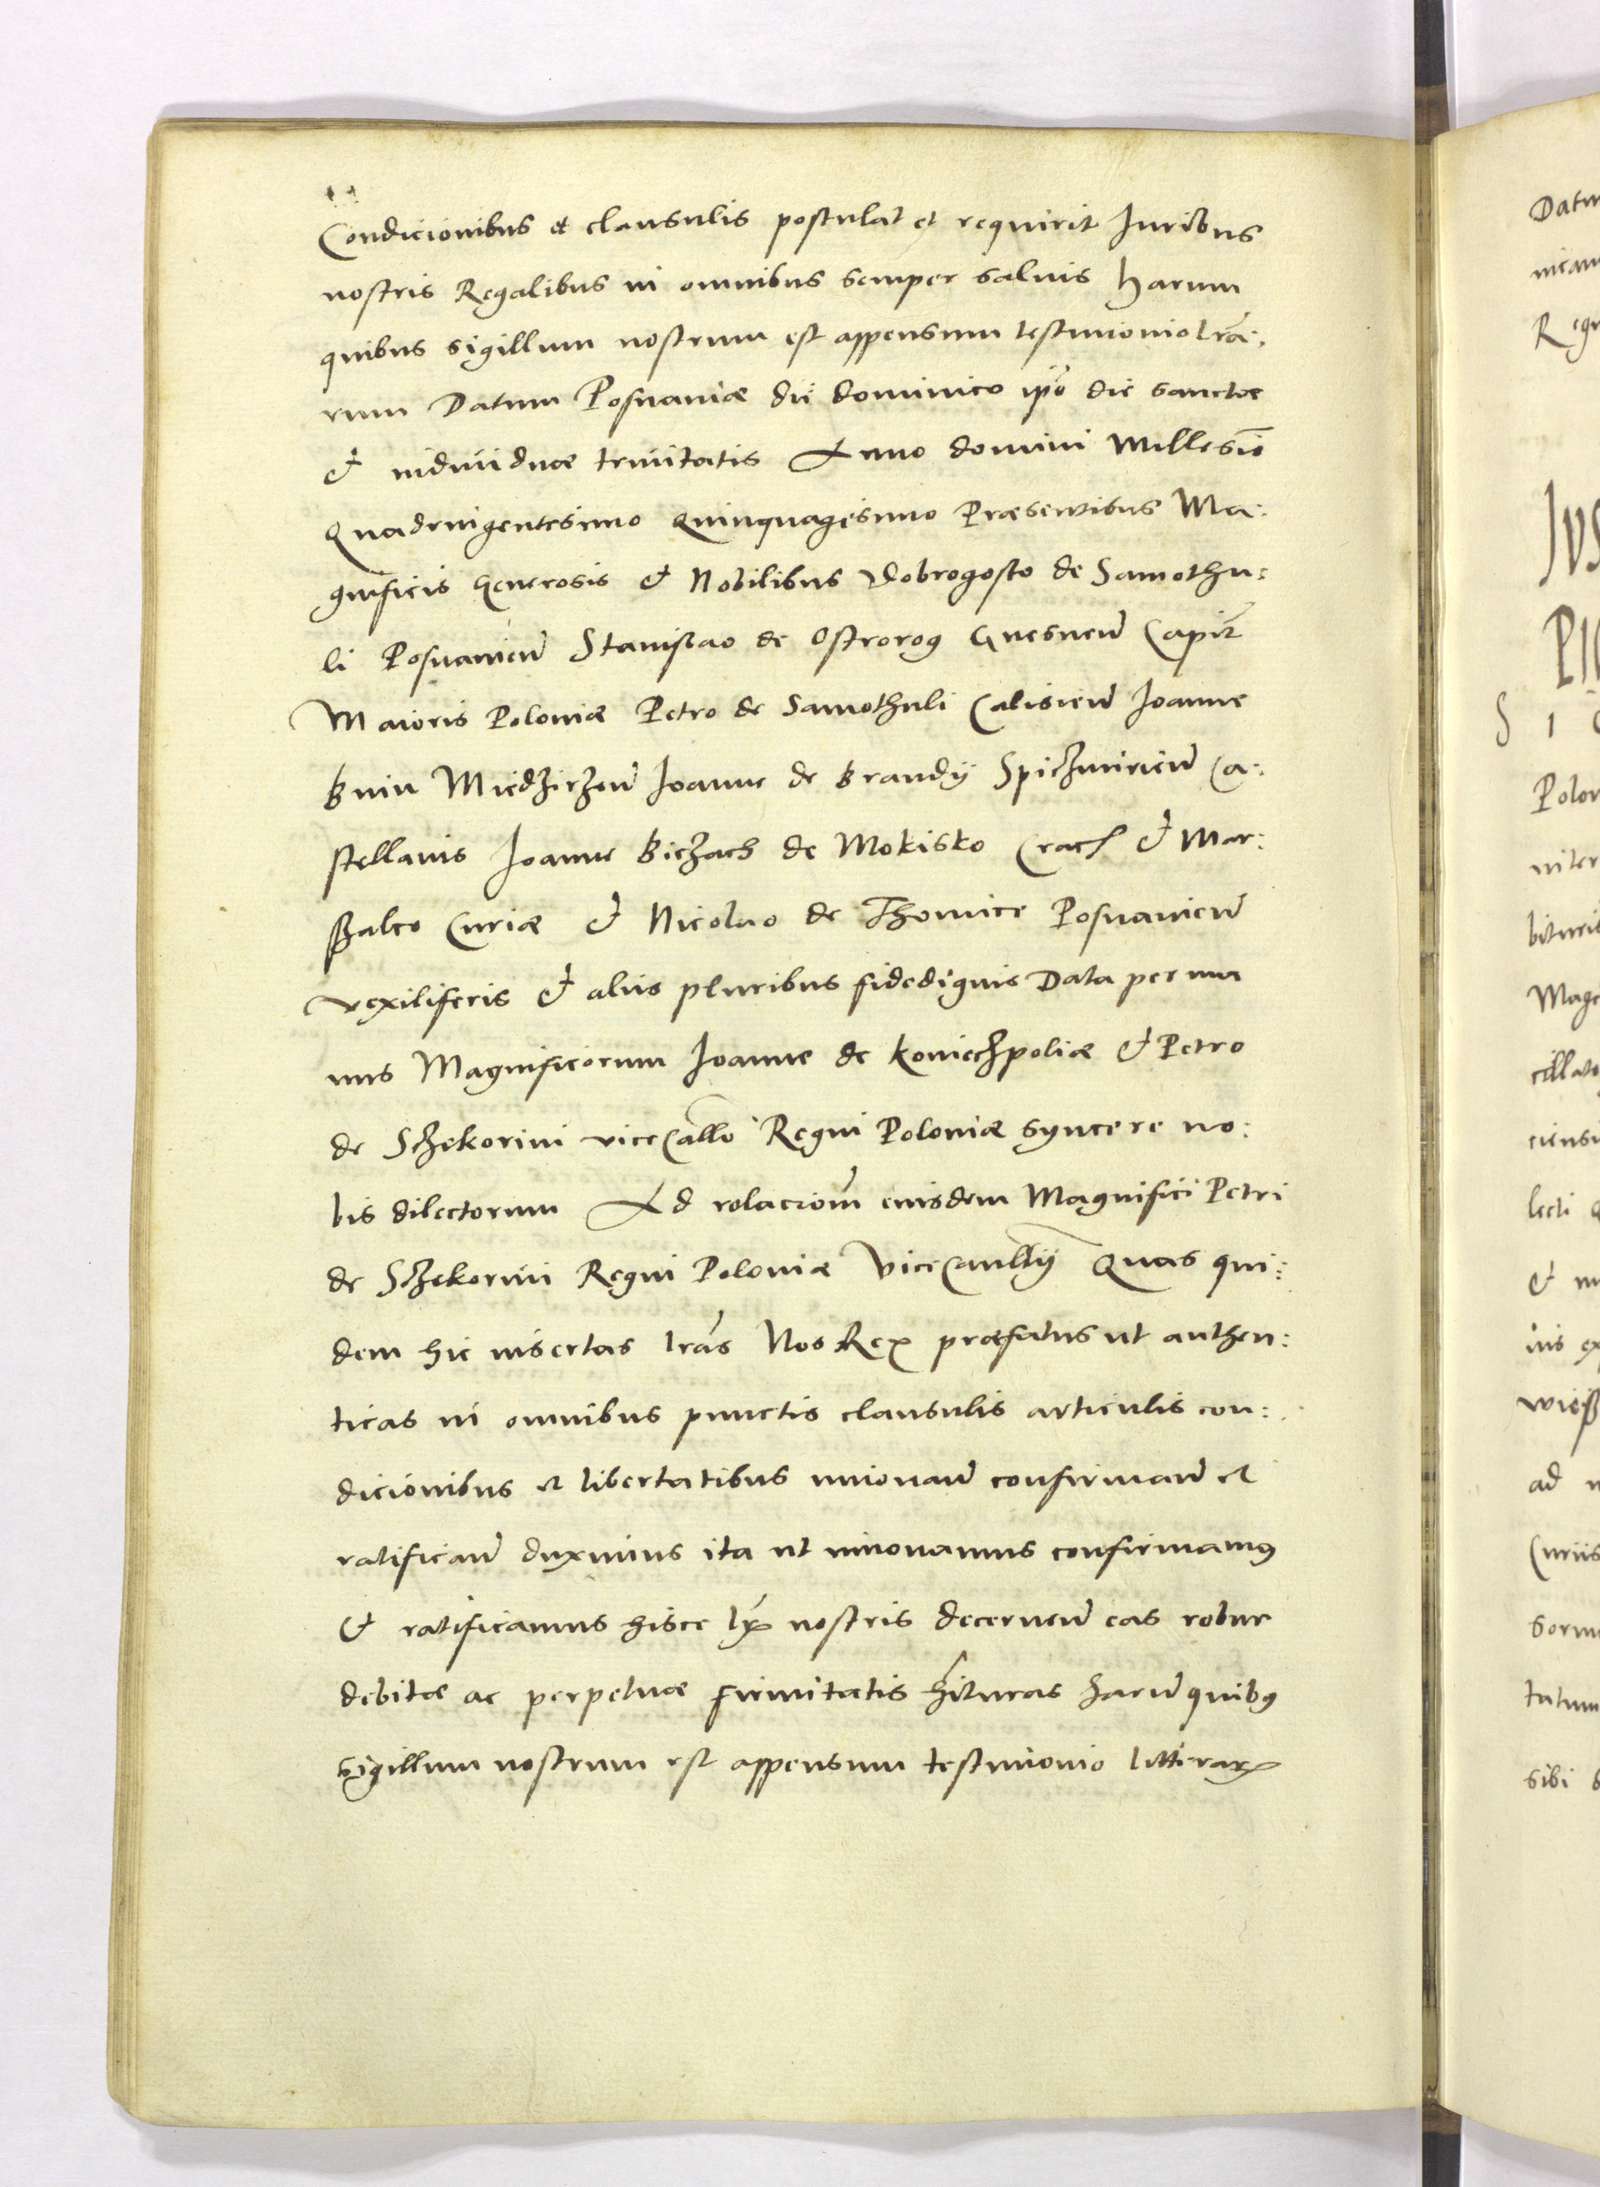 Condicionibus et clausulis postulat et requirit Iuribus
nostris Regalibus in omnibus semper saluis Harum
quibus sigillum nostrum est appensum testimonio l̃ra:
rum Datum Posnaniæ die dominico ip̃o die sanctæ
& indiuiduæ trinitatis Anno domini Millesiõ
Quadringentesimo Quinquagesimo Præsentibus Ma:
gnificis Generosis & Nobilibus Dobrogosto de Samothu:
li Posnanieñ Stanislao de Ostrorog Gnesneñ Capit̃
Maioris Poloniæ Petro de Samothuli Calisieñ Ioanne
Bnin Miedzirzeñ Ioanne de Brandÿ Spiczmirieñ Ca:
stellanis Ioanne Biezach de Mokisko Crac & Mar:
szalco Curiæ & Nicolao de Thomice Posnanieñ
vexiliferis & aliis pluribus fidedignis Data per ma
nus Magnificorum Ioanne de Koniechpoliæ & Petro
de Sczekorini viceCallo Regni Poloniæ syncere no:
bis dilectorum Ad relacioñ eiusdem Magnifici Petri
de Sczekorini Regni Poloniæ ViceCancllÿ Quas qui:
dem hic insertas l̃ras Nos Rex præfatus ut authen:
ticas in omnibus punctis clausulis articulis con:
dicionibus et libertatibus innouañ confirmañ et
ratificañ duximus ita ut innouamus confirmamus
& ratificamus hisce l̃rꝭ nostris decerneñ eas robur
debitæ ac perpetuæ firmitatis h̃ituras harũ quibus
Sigillum nostrum est appensum testimonio litterarꝝ
Datu
R
IVS
PI
S I
Polon
inter
bituris
Mag
cellato
ciensi
lecti
&
ad
Curiis
tutum
sibi